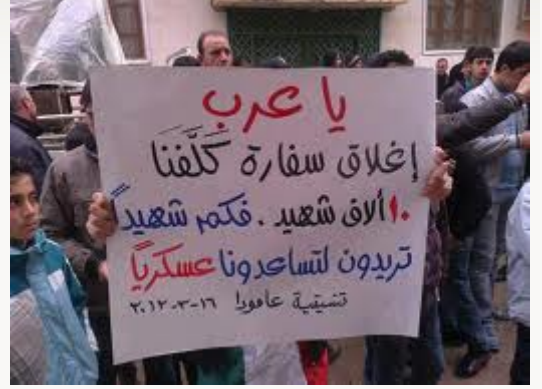 يا عرب
إغلاق سفارة كَلَّفَنا
١٠ ألاف شهيد . فكم شهيداً
تريدون لتساعدونا عسكرياً
تنسيقية عامودا ١٦-٣-٢٠١٢